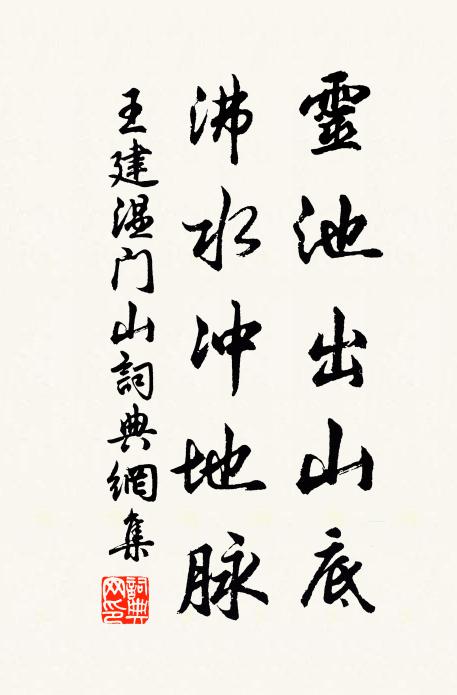 靈池出山底
沸水冲地脉
王建温门山詞典網集
詞典网印